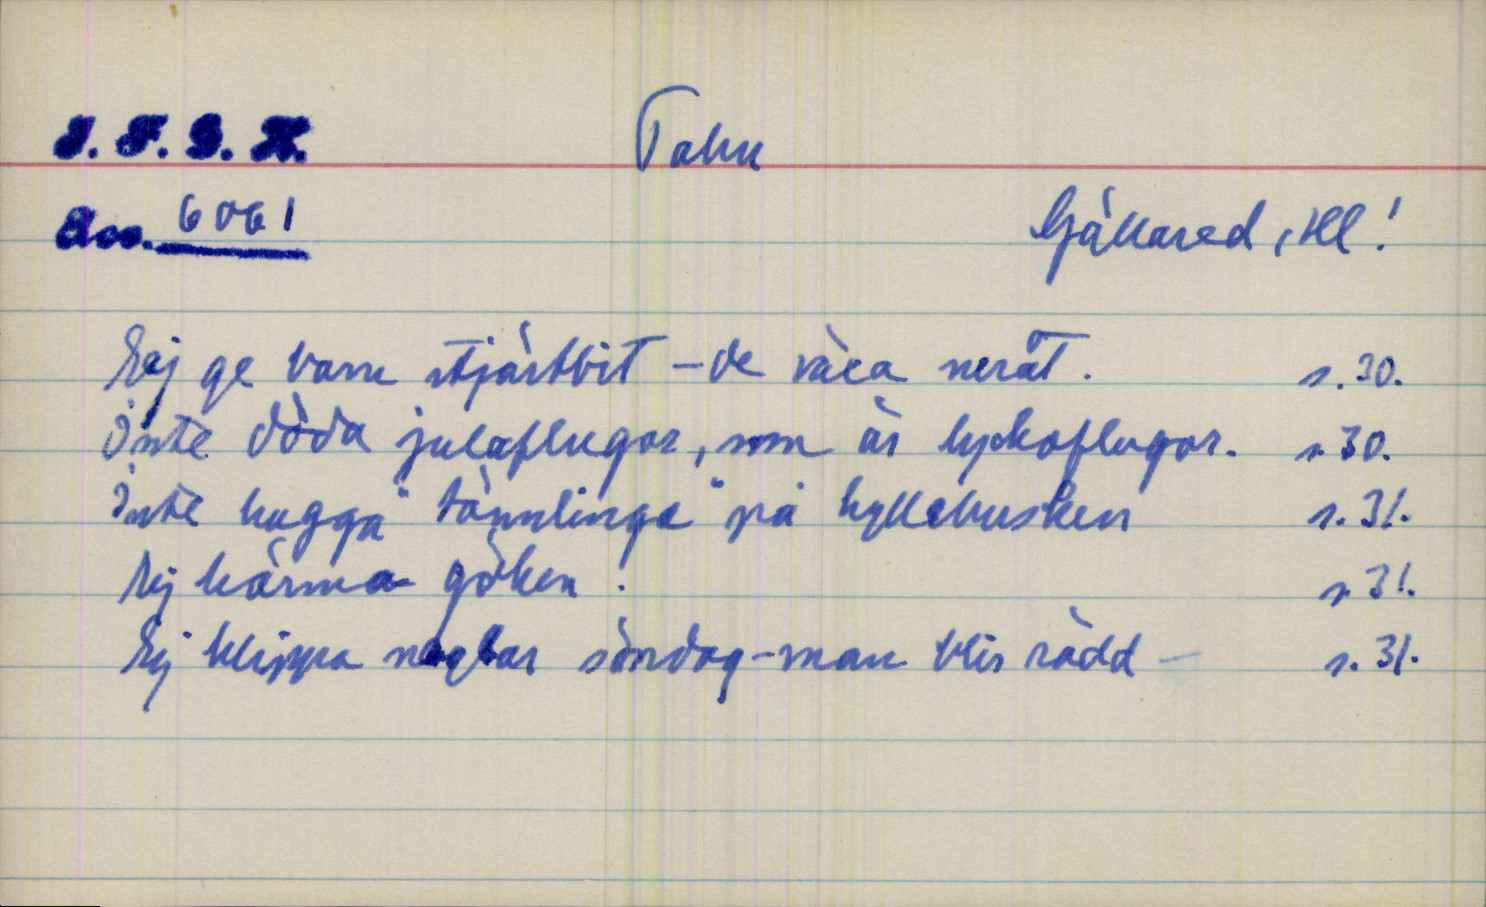 I. F. G. H.
Tabu
Acc. 6061
Gällared, Hl!
Ej ge barn stjärtbit – de växa neråt. s. 30.
Inte döda julaflugor, som är lyckoflugor. s. 30.
Inte hugga "tömlinga" på hyllebusken s. 31.
Ej härma göken. s. 31.
Ej klippa naglar söndag – man blir rädd – s. 31.